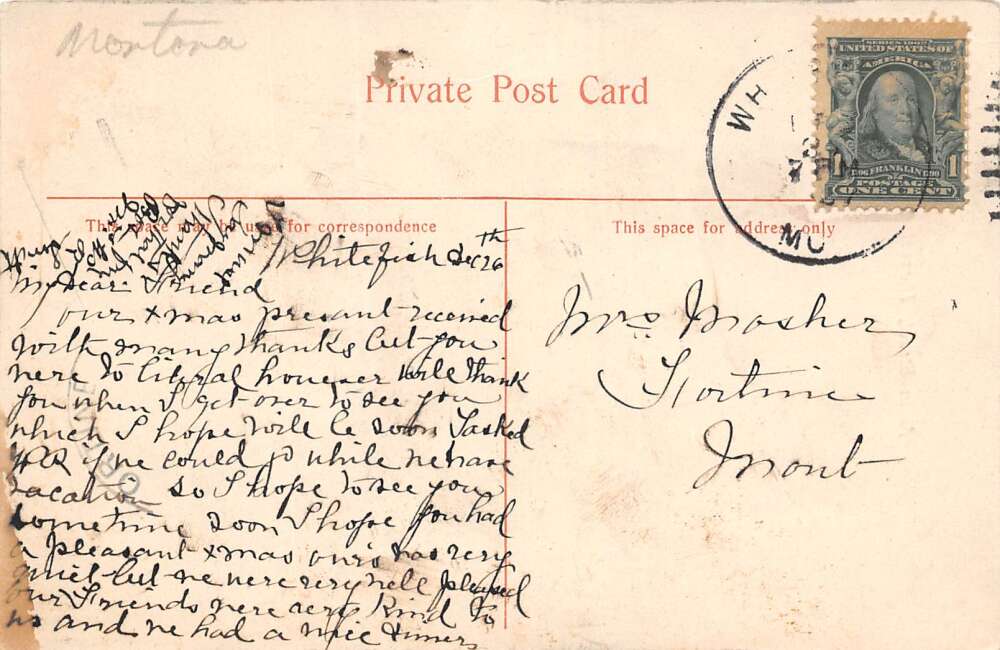 Montana
Private Post Card
SERIES 1902
UNITED STATES OF
AMERICA
1 FRANKLIN 1
POSTAGE
ONE CENT
WH
MO
This space may be used for correspondence
This space for address only
Whitefish Dec 26th
My Dear Friend
our xmas presant received
with many thanks but you
were to liberal however will thank
you when I get over to see you
which I hope will be soon I asked
if we could go while we have
vacation so I hope to see you
sometime soon I hope you had
a pleasant xmas our's was very
quiet but we were very well pleased
our Friends were very Kind to
us and we had a nice times
Mrs Mosher
Fortine
Mont